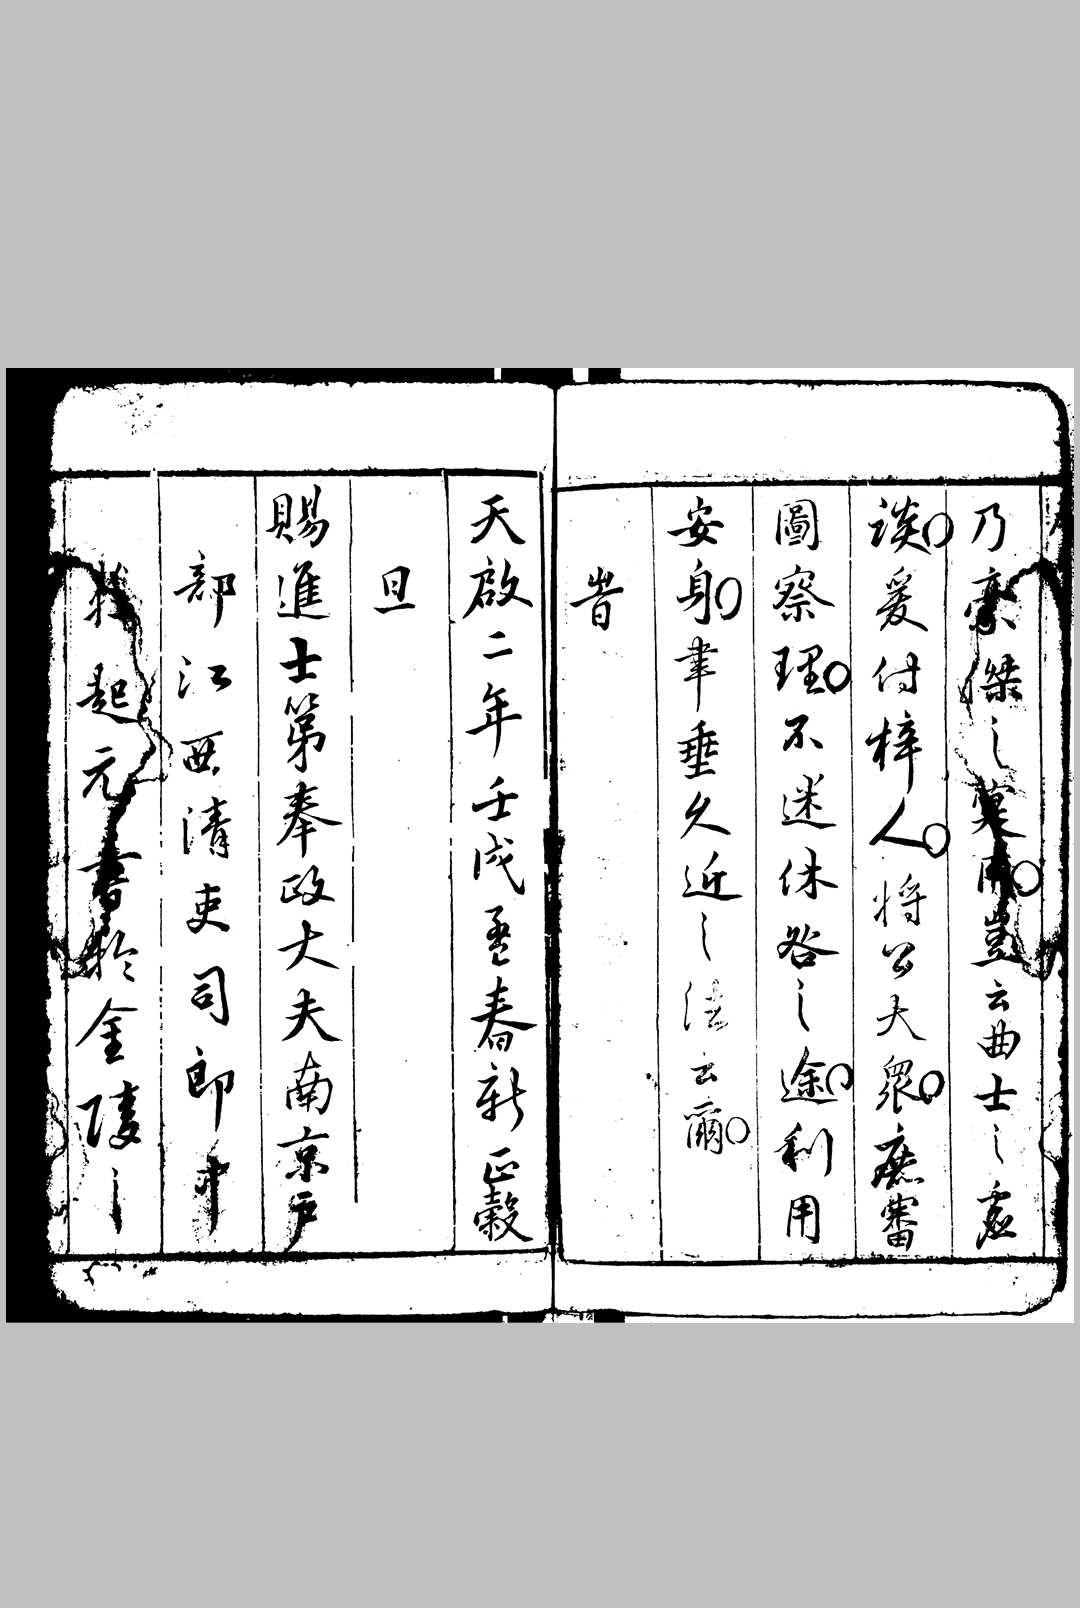 乃豪傑之菟而豈云曲士之處
談爰付梓人將公大眾庶審
圖察理不迷休咎之途利用
安身聿垂久近之法云爾
旹
天啟二年壬戌孟春新正穀
旦
賜進士第奉政大夫南京戶
部江西清吏司郎中
起元書於金陵之